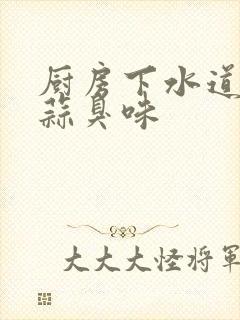 厨房下水道
蒜臭味
大大大怪将軍